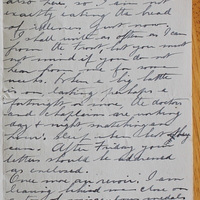 also here, so I am not
exactly eating the bread
of idleness just now.
I shall write as often as I can
from the front, but you must
not mind if you do not
hear from me for some
weeks. When a big battle
is on, lasting perhaps a
fortnight or more, the doctors
and Chaplains are working
day & night snatching an
hour's sleep when & how they
can. After Friday your
letters should be addressed
as enclosed.
Once more au revoir. I am
leaving behind me close on